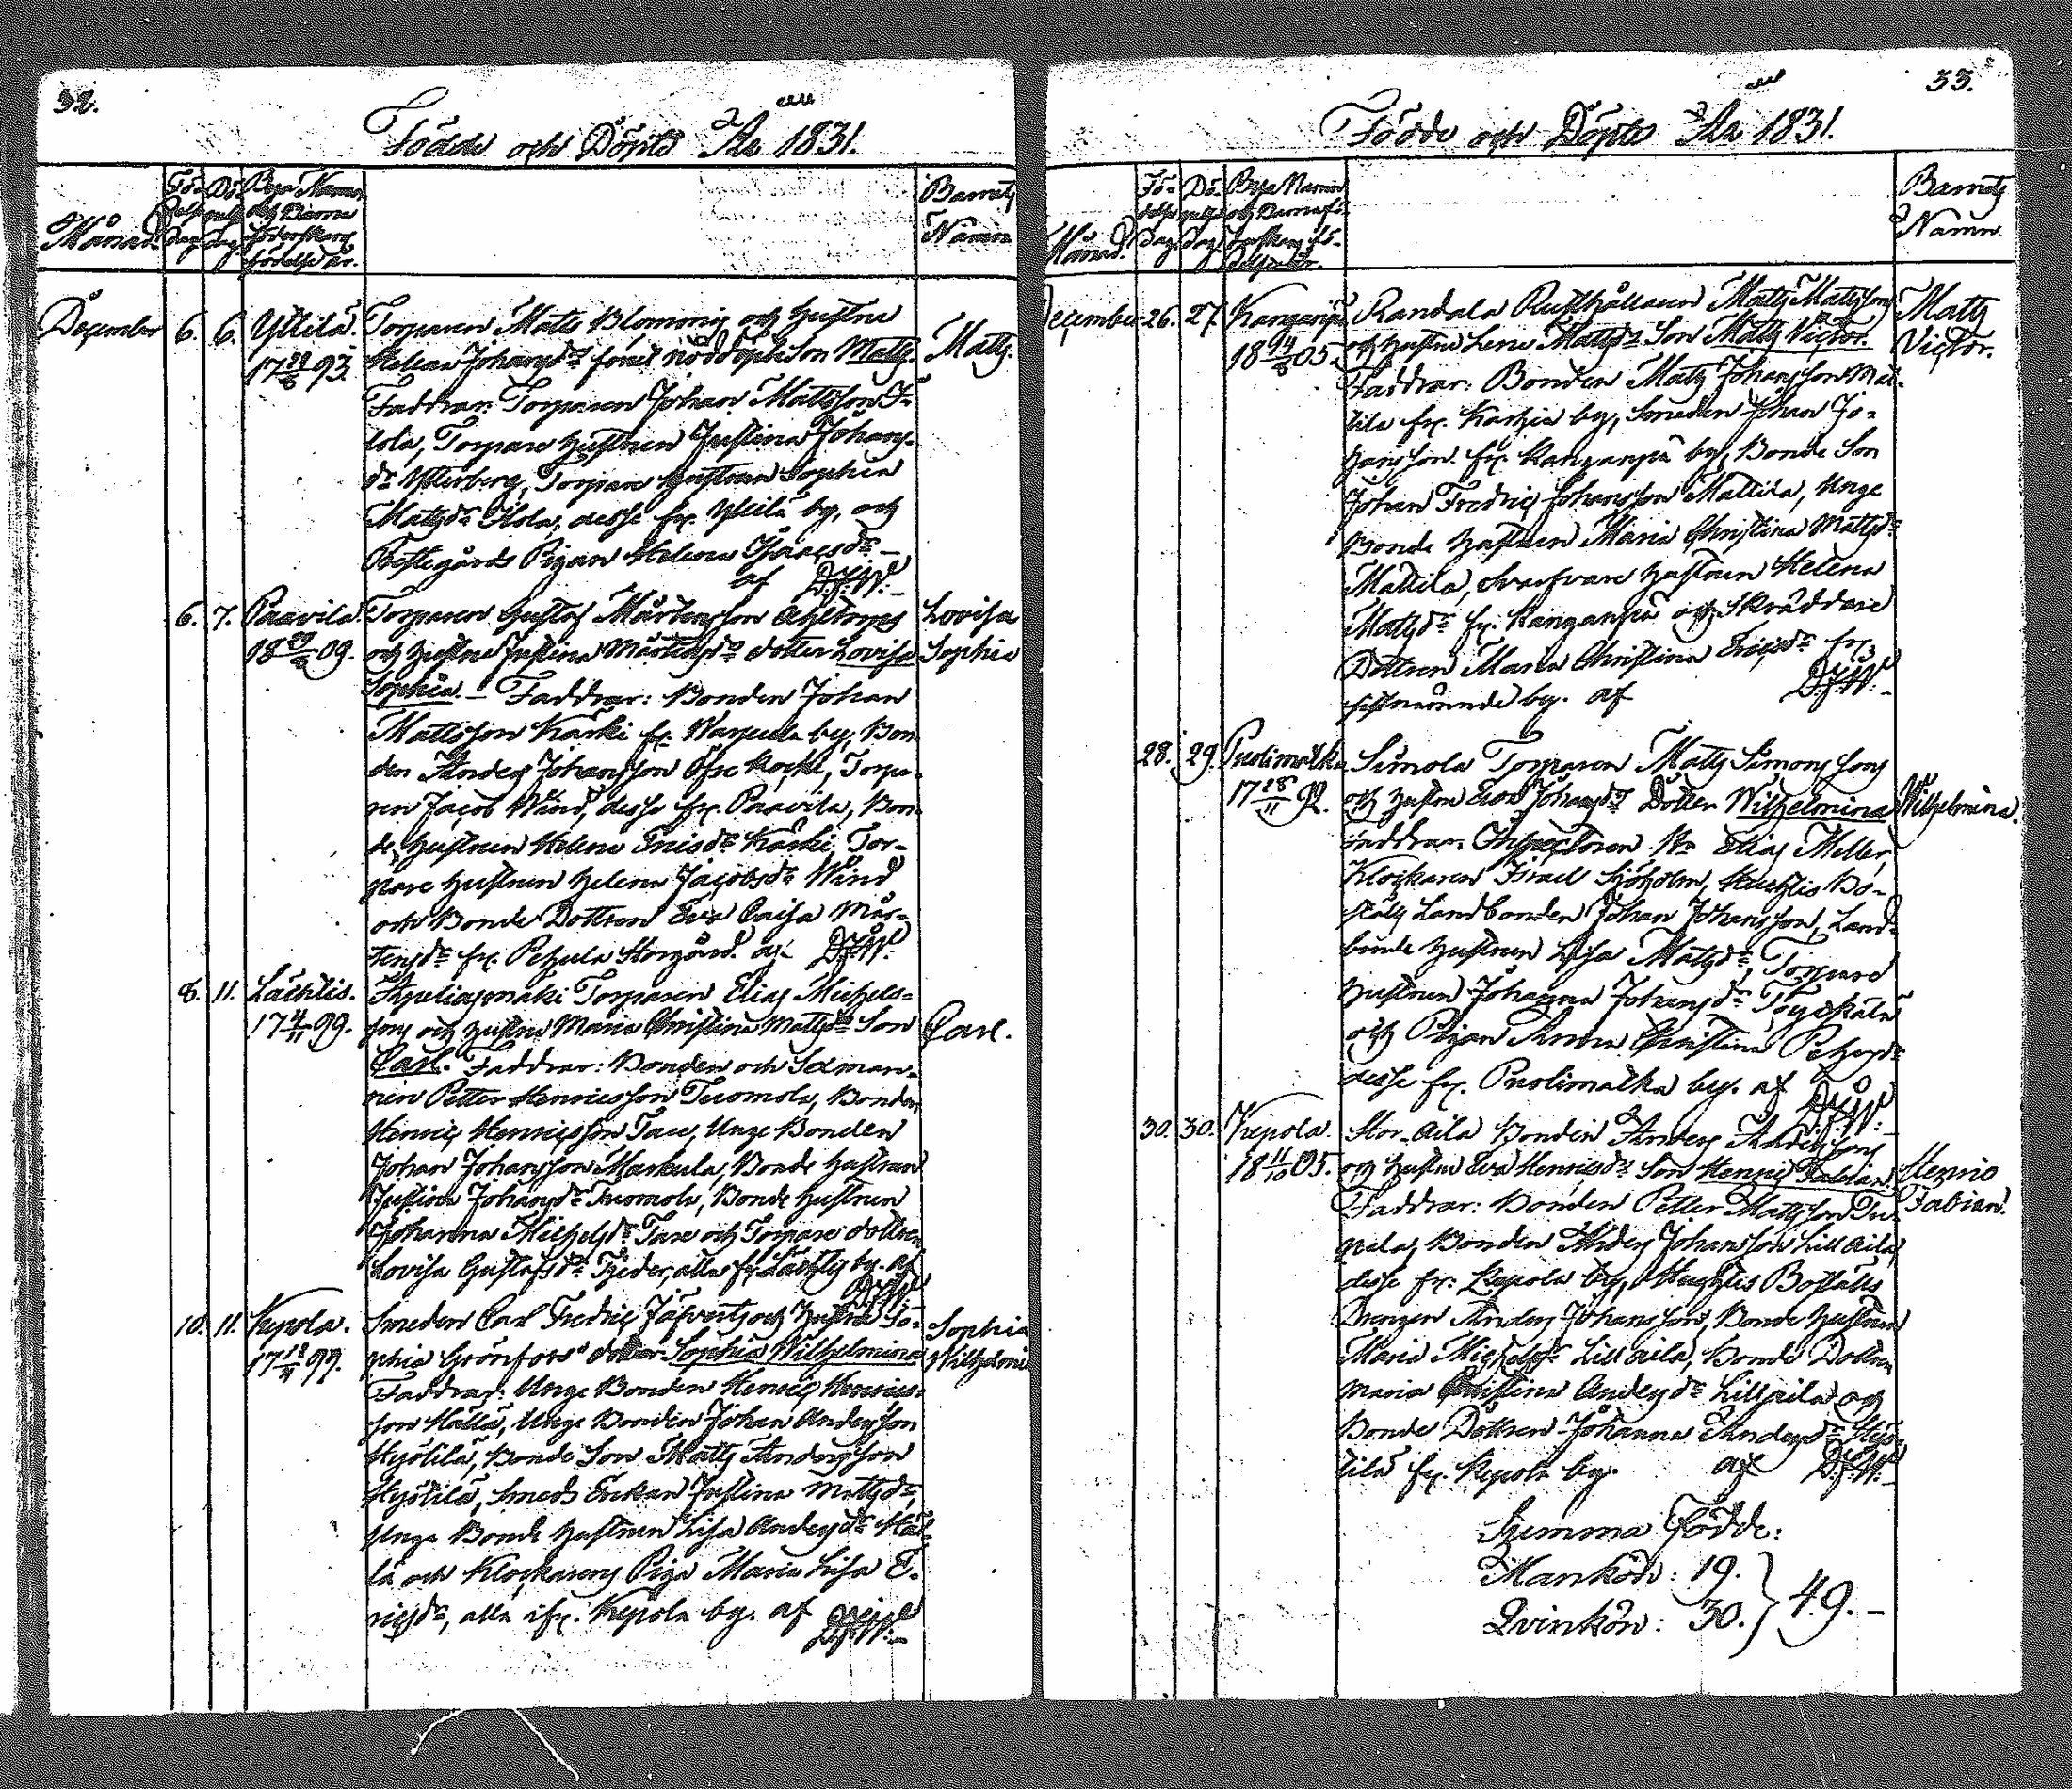 32.
Födde och Döpte År 1831.
Månad.
Fö-
delse
Dag
Dö-
pelse
Dag
Bya Namn
och Barna
föderskans
födelse år.
Barnets
Namn
December 6. 6. Yttilä. Torparen Matts Blomming och hustru Matts.
17 93. Helena Johansdr förut nöddöpte Son Matts.
Faddrar: Torparen Johan Mattsson I-
lola, Torpare hustrun Justina Johans-
dr Ytterberg, Torpare hustrun Sophia
Mattsdr Ilola, desse fr. Yttilä by, och
Prestegårds Pigan Helena Isaacsdr
af D.J.W.
6. 7. Paavila. Torparen Gustaf Mårtensson Lovisa
18 09. och hustru Justina Mårtensdr dotter Lovisa Sophia
Sophia. Faddrar: Bonden Johan
Mattsson Karki fr. by, Bon-
den Anders Johansson Öfre Kocki, Torpa-
ren Jacob Wind, desse fr. Paavila, Bon-
de hustrun Helena Ericsdr Karki, Tor-
pare hustrun Helena Jacobsdr Wind
och Bonde Dottren Eva Caisa Mår-
tensdr fr. Storgård. af D.J.W.
8. 11. Lächtis. Torparen Elias Michels-
17 4/11 99. son och hustru Maria Christina Mattsdr Son Carl.
Carl. Faddrar: Bonden och Sexman-
nen Petter Henricsson Tuomola, Bonden
Henric Henricsson Tare, Unge Bonden
Johan Johansson Markula, Bonde hustrun
Justina Johansdr Tuomola, Bonde hustrun
Johanna Michelsdr Tare och Torpare dottren
Lovisa Gustafsdr alla fr. Lächtis by. af
D.J.W.
10. 11. Kepola. Smeden Carl Fredric och hustru So- Sophia
17 99. phia Grönfors dotter Sophia Wilhelmina Wilhelmina
Faddrar: Unge Bonden Henric Henrics-
son Hällä, Unge Bonden Johan Andersson
Hyötilä, Bonde Son Matts Andersson
Hyötilä, Smeds Enkan Justina Mattsdr,
Unge Bonde hustrun Lisa Andersdr Häl-
lä och Klockarens Piga Maria Lisa E-
ricsdr, alla ifr. Kepola by. af D.J.W.
33.
Födde och Döpte År 1831.
Månad.
Fö-
delse
Dag.
Dö-
pelse
Dag.
Bya Namn
och Barnafö-
derskans fö-
delse år.
Barnets
Namn.
December 26. 27. Randala Rusthållaren Matts Mattsson Matts
18 05. och hustru Lena Mattsdr Son Matts Victor. Victor.
Faddrar: Bonden Matts Johansson Mat-
tila fr. by, Smeden Johan Jo-
hansson fr. Kanganpä by, Bonde Son
Johan Fredric Johansson Mattila, Unge
Bonde hustrun Maria Christina Mattsdr
Mattila, hustrun Helena
Mattsdr fr. Kanganpä och Skräddare
Dottren Maria Christina Ericsdr fr.
sistnämnde by. af D.J.W.
28. 29. Puolimatka Simola Torparen Matts Simonsson
17 28/11 92. och hustru Eva Johansdr Dotter Wilhelmina Wilhelmina.
Faddrar: Inspectoren Hr Elias Meller,
Klockaren Israel Sjöholm, Huchtis Bo-
ställs Landbonden Johan Johansson, Land-
bonde hustrun Lisa Mattsdr, Torpare
hustrun Johanna Johansdr
och Pigan Anna Christina
desse fr. Puolimatka by. af D.J.W.
30. 30. Kepola. Stor-Aila Bonden Anders Andersson
18 11/10 05. och hustru Eva Henricsdr Son Henric Fabian. Henric
Faddrar: Bonden Petter Mattsson Fabian.
Bonden Anders Johansson Lill Aila,
desse fr. Kepola by, Huchtis Boställs
Drengen Anders Johansson, Bonde hustrun
Maria Michelsdr Lill Aila, Bonde Dottren
Maria Christina Andersdr Lill Aila och
Bonde Dottren Johanna Andersdr Hyö-
tilä fr. Kepola by. af D.J.W.
Summa Födde:
Mankön: 19.
Qvinkön: 30. } 49.